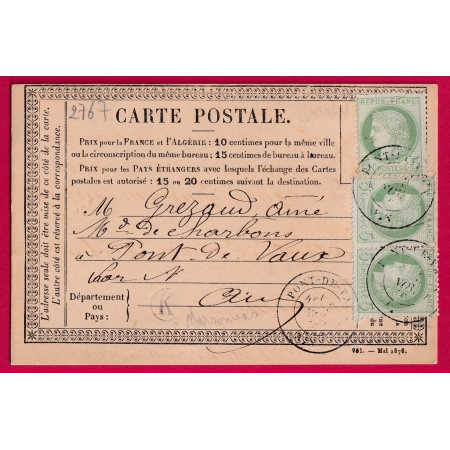 2767
CARTE POSTALE.
PRIX pour la FRANCE et l'ALGÉRIE: 10 centimes pour la même ville
ou la circonscription du même bureau; 15 centimes de bureau à bureau.
PRIX pour les PAYS ÉTRANGERS avec lesquels l'échange des Cartes
postales est autorisé : 15 ou 20 centimes suivant la destination.
L'adresse seule doit être mise de ce côté de la carte.
L'autre côté est réservé à la correspondance.
M Grezaud ainé
Md. de charbons
à Pont-de-Vaux
Ain
Département
ou
Pays :
R
REPUB FRANC
POSTES
PONT-DE-
981. — Mai 1876.